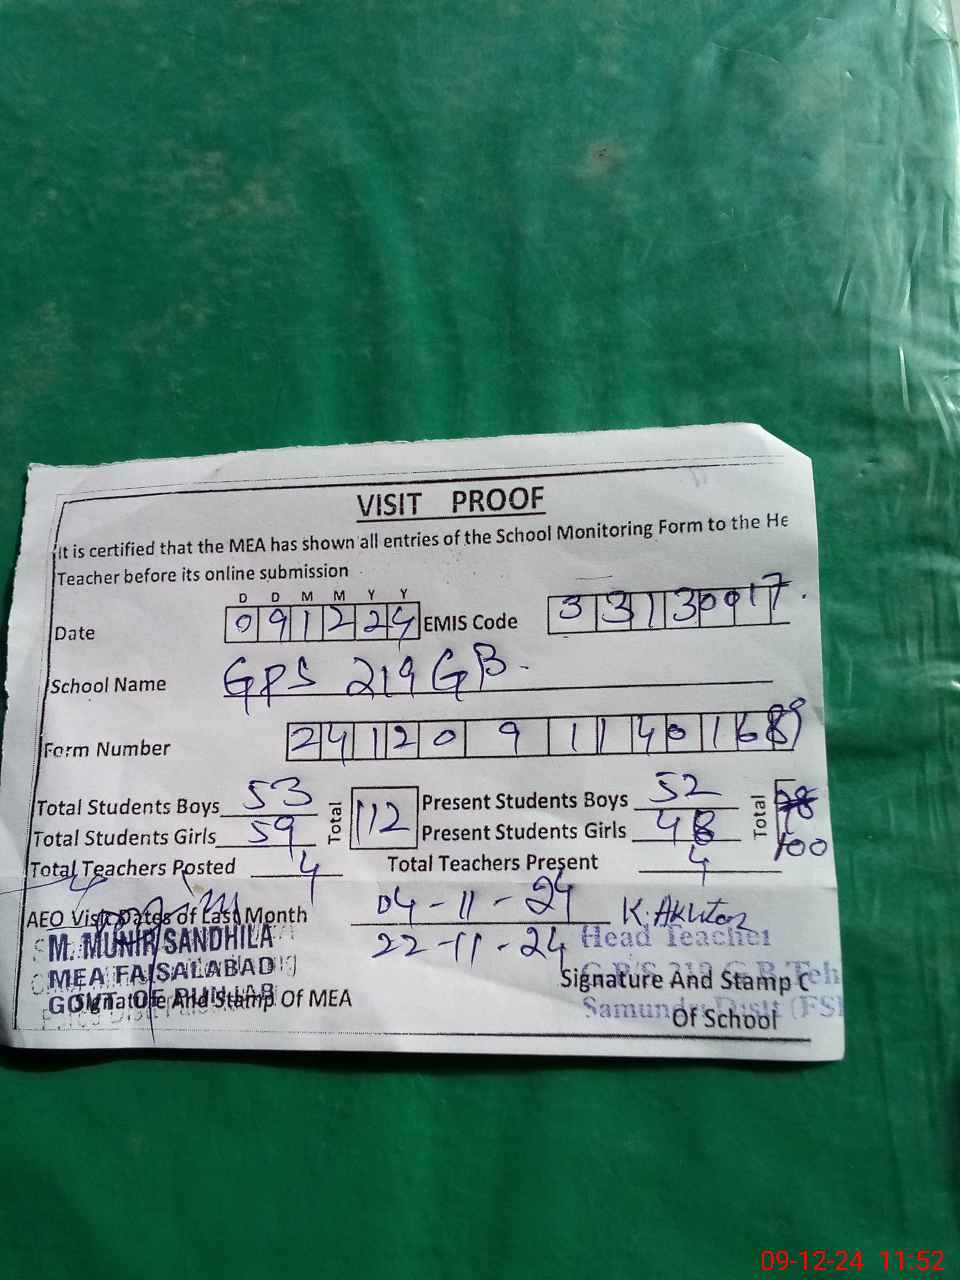 VISIT PROOF
It is certified that the MEA has shown all entries of the School Monitoring Form to the He
Teacher before its online submission
D D M M Y Y
Date 091224 EMIS Code 33130017
School Name GPS 219 GB.
Form Number
Total Students Boys 53 Total 112 Present Students Boys 52 Total
Total Students Girls 59 Present Students Girls 48 100
Total Teachers Posted 4 Total Teachers Present 4
AEO Visit Dates of Last Month 04-11-24 K. Akhtar
22-11-24
M. MUNIR SANDHILA
MEA FAISALABAD
GOVT OF PUNJAB
Signature And Stamp Of MEA
Head Teacher
G.P/S 219 G.B Teh
Signature And Stamp
Of School
09-12-24 11:52